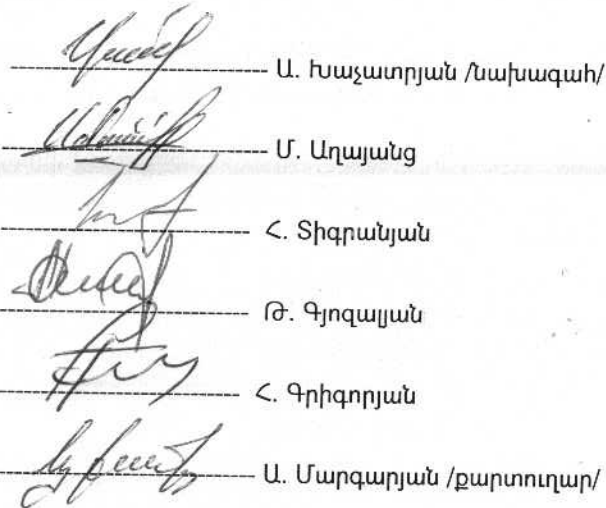 Ա. Խաչատրյան /նախագահ/
Մ. Աղայանց
Հ. Տիգրանյան
Թ. Գյոզալյան
Հ. Գրիգորյան
Ա. Մարգարյան /քարտուղար/